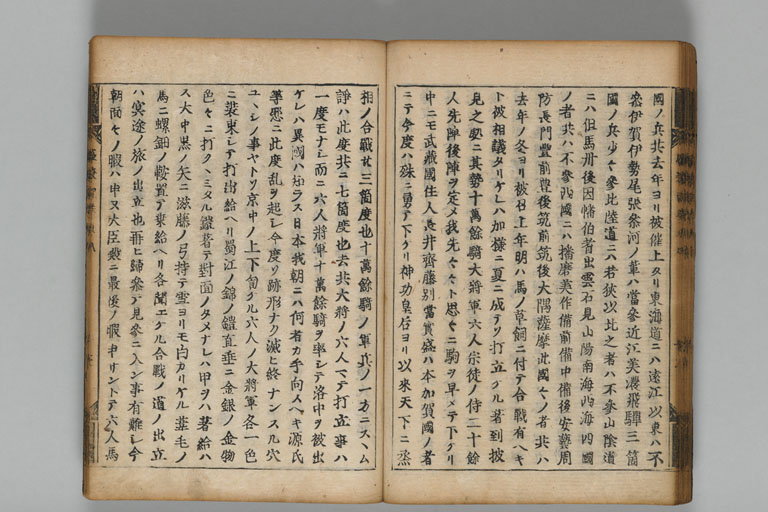 國ノ兵共去年ヨリ被催上タリ東海道ニハ遠江以東ハ不
參伊賀伊勢尾張參河ノ輩ハ當參近江美濃飛驒三箇
國ノ兵少々參此陸道ニハ若狹以北之者ハ不參山陰道
ニハ但馬丹後因幡伯耆出雲石見山陽南海西海四國
ノ者共ハ不參西國ニハ播磨美作備前備中備後安藝周
防長門豐前豊後筑前筑後大隅薩摩此國々ノ者共ハ
去年ノ冬ヨリ被召上年明ハ馬ノ草飼ニ付テ合戰有ヘキ
ト被相議タリケレハ加樣ニ夏ニ成テソ打立クル著到披
見之処ニ其勢十萬餘騎大將軍六人宗徒ノ侍二十餘
人先陣後陣ヲ定メ我先々々ト思々ニ駒ヲ早メテ下クリ
中ニモ武藏國住人長井齊藤別當實盛ハ本加賀國ノ者
ニテ今度ハ殊ニ勇テ下クリ神功皇后ヨリ以來天下ニ烝
相ノ合戰廿三箇度也十萬餘騎ノ軍兵ノ一方ニスヽム
諍ハ此度共ニ七箇度也去共大將ノ六人マテ打立事ハ
一度モナシ而ニ六人將軍十萬餘騎ヲ率シテ洛中ヲ被出
ケレハ異國ハ知ラス日本我朝ニハ何者カ手向スヘキ源氏
等惡ニ此度亂ヲ起シ今度ソ跡形ナク滅ヒ終ナンスル穴
ユヽシノ事ヤトソ京中ノ上下訇クル六人ノ大將軍各一色
ニ裝束シテ打出給ヘリ蜀江ノ錦ノ鎧直垂ニ金銀ノ金物
色々ニ打クヽミタル鎧著テ對面ノタメナレハ甲ヲハ著給ハ
ス大中黒ノ矢ニ滋藤ノ弓持テ雪ヨリモ白カリケル葦毛ノ
馬ニ螺鈿ノ鞍置テ乘給ヘリ各聞エケル合戰ノ道ノ出立
ハ冥途ノ旅ノ出立也再ヒ歸參テ見參ニ入ン事有難シ今
朝面々ノ暇ハ申ヌ大臣殿ニ最後ノ暇申サントテ六人馬